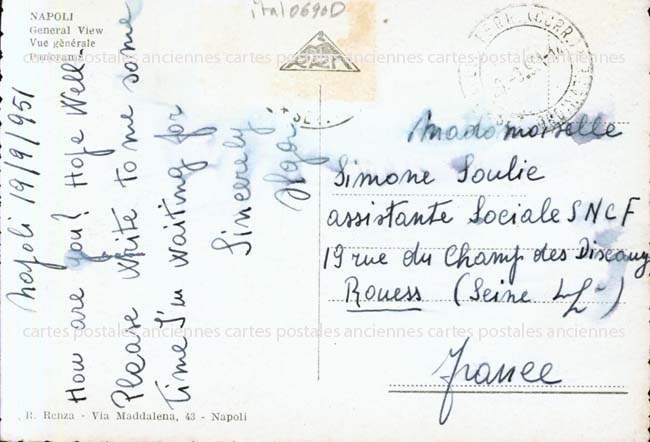 NAPOLI
General View
Vue générale
Panorama
ital0690D
Napoli 19/9/951
How are you? Hope Well.
Please write to me some
time I'm waiting for
Sincerely
Madomoiselle
Simone Soulie
assistante Sociale SNCF
19 rue du Champ des Diseaux
Rouess (Seine Inf.)
France
cartes postales anciennes cartes postales anciennes cartes postales anciennes
cartes postales anciennes cartes postales anciennes cartes postales anciennes
R. Renza - Via Maddalena, 43 - Napoli